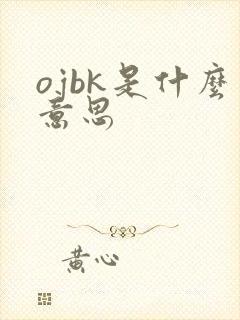 ojbk是什麼
意思
黄心